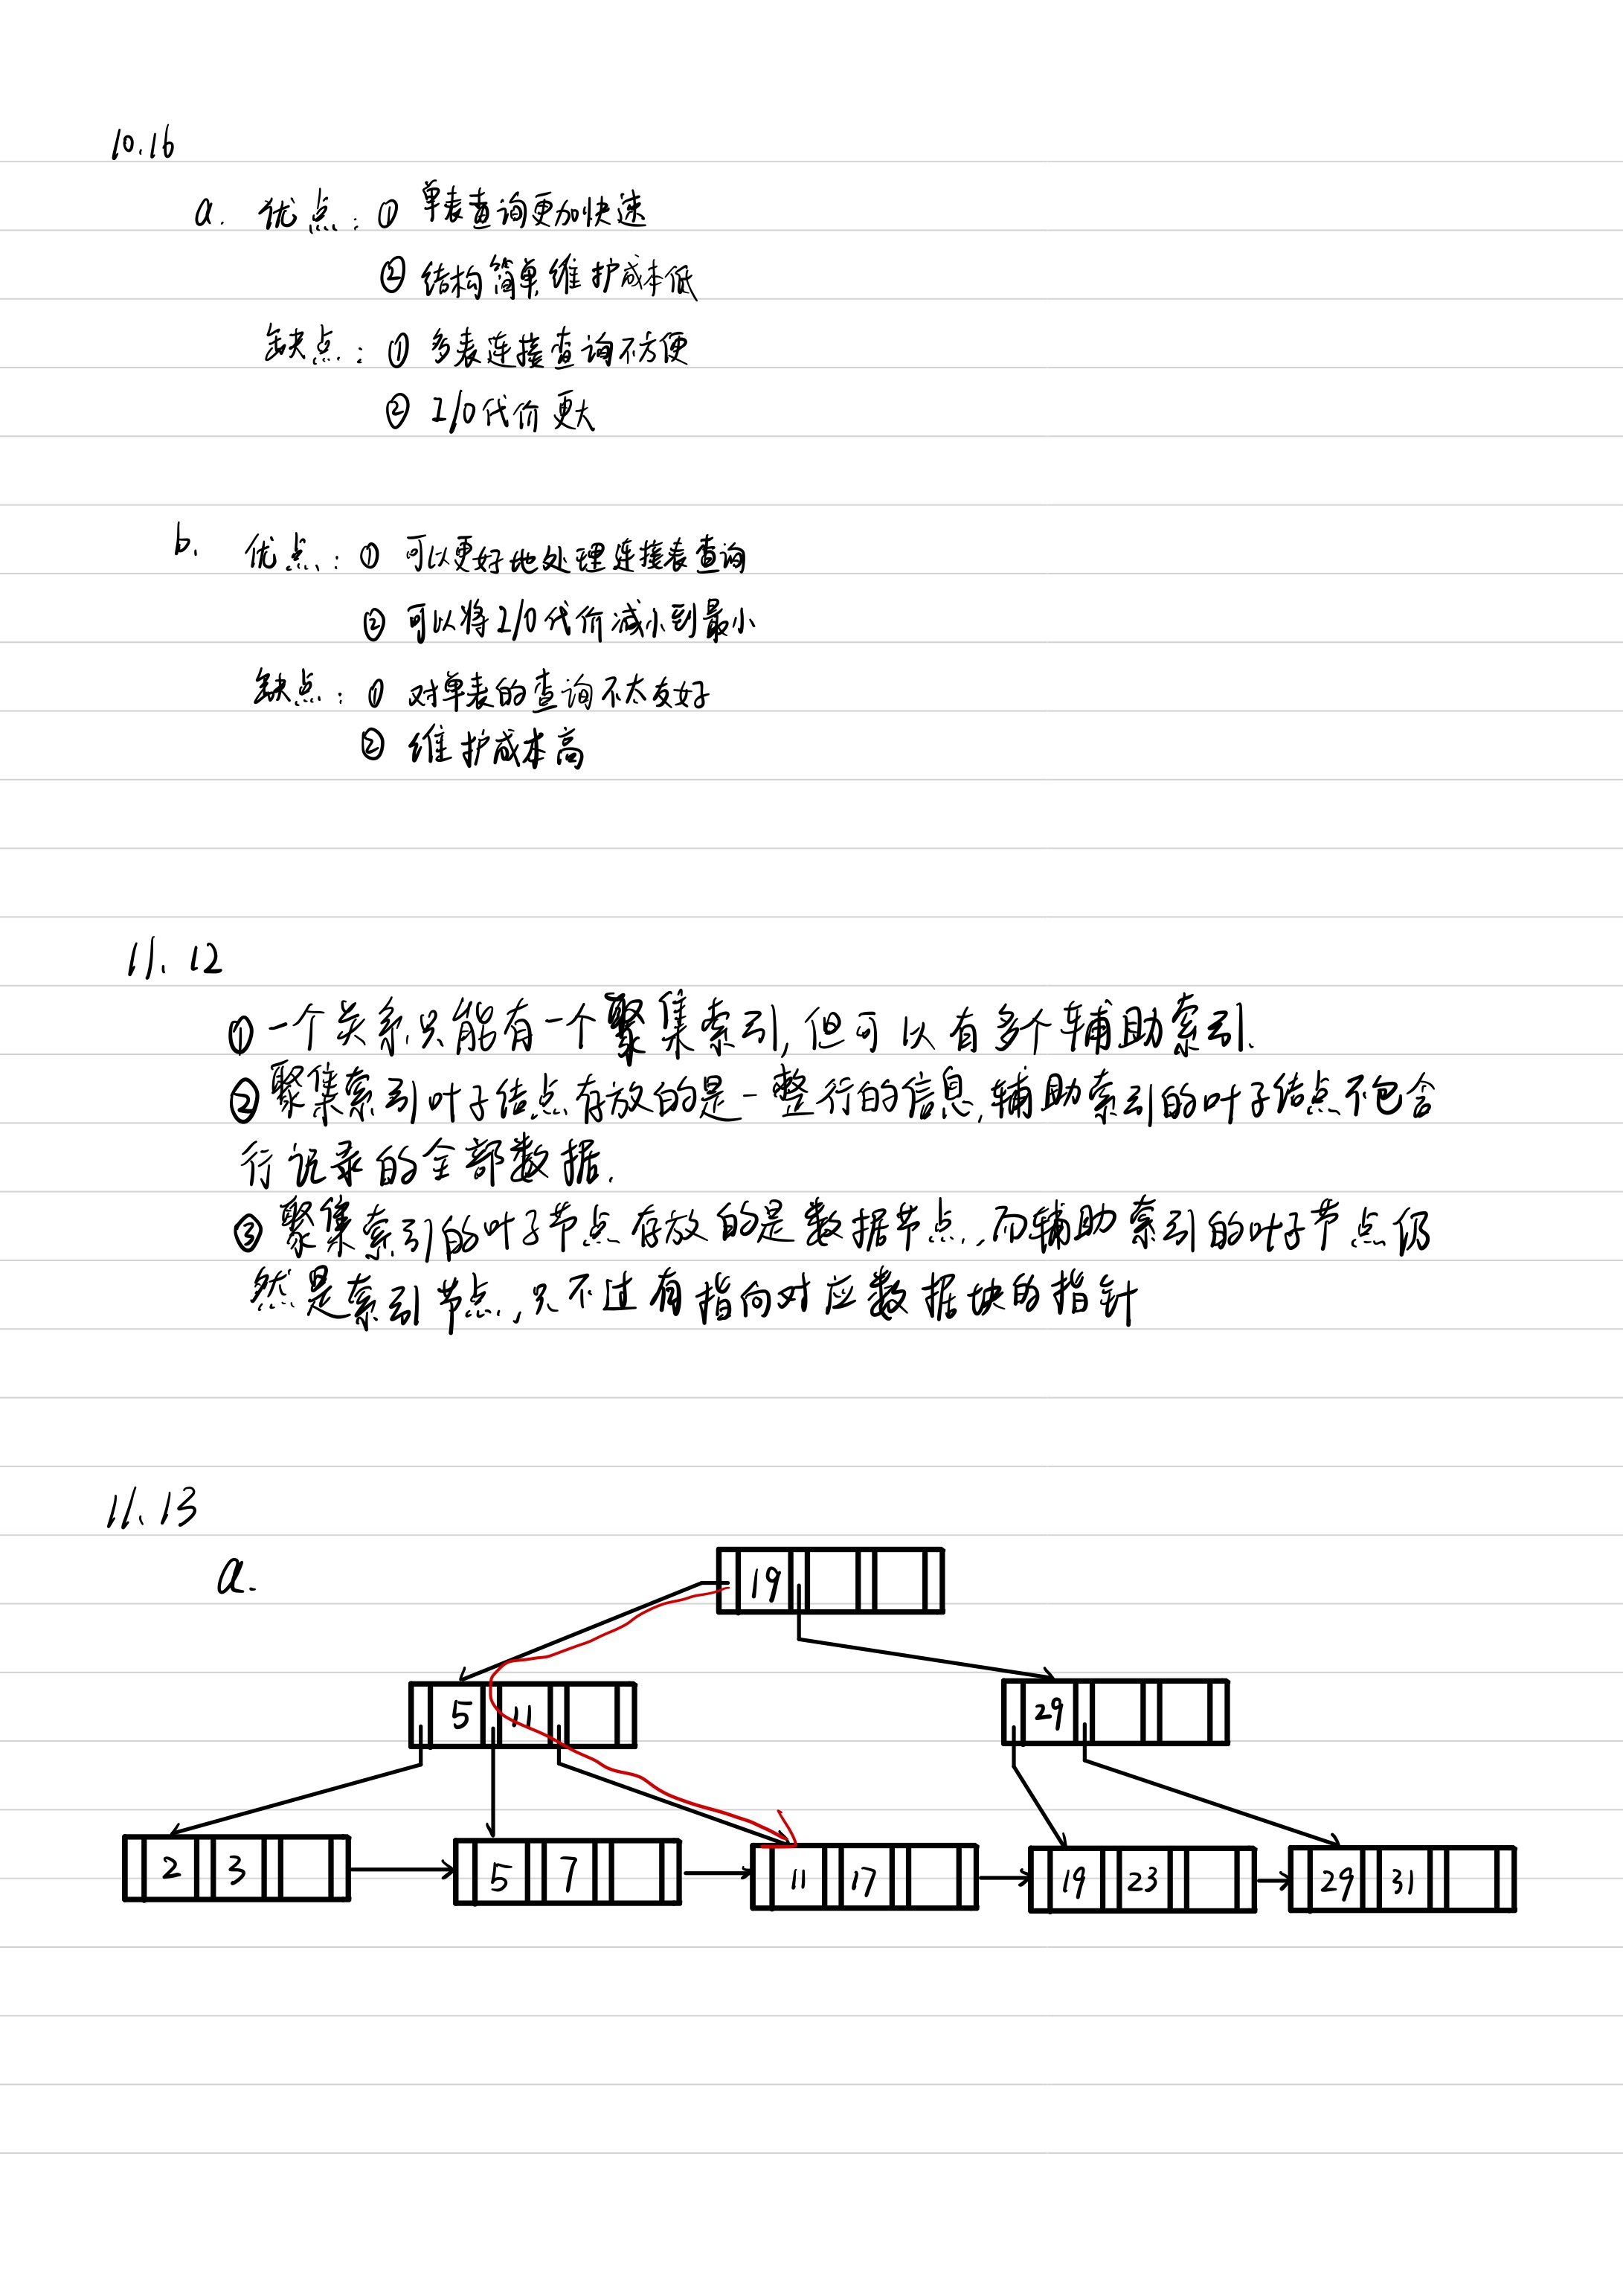 10.16
a. 优点: ① 单表查询更加快速
② 结构简单,维护成本低
缺点: ① 多表连接查询不方便
② I/O代价更大
b. 优点: ① 可以更好地处理连接表查询
② 可以将I/O代价减小到最小
缺点: ① 对单表的查询不太友好
② 维护成本高
11.12
①一个关系只能有一个聚集索引,但可以有多个辅助索引.
②聚集索引叶子结点存放的是一整行的信息,辅助索引的叶子结点不包含
行记录的全部数据.
③ 聚集索引的叶子节点存放的是数据节点,而辅助索引的叶子节点仍
然是索引节点,只不过有指向对应数据块的指针
11.13
a.
19
5 11
29
2 3
5 7
11 17
19 23
29 31